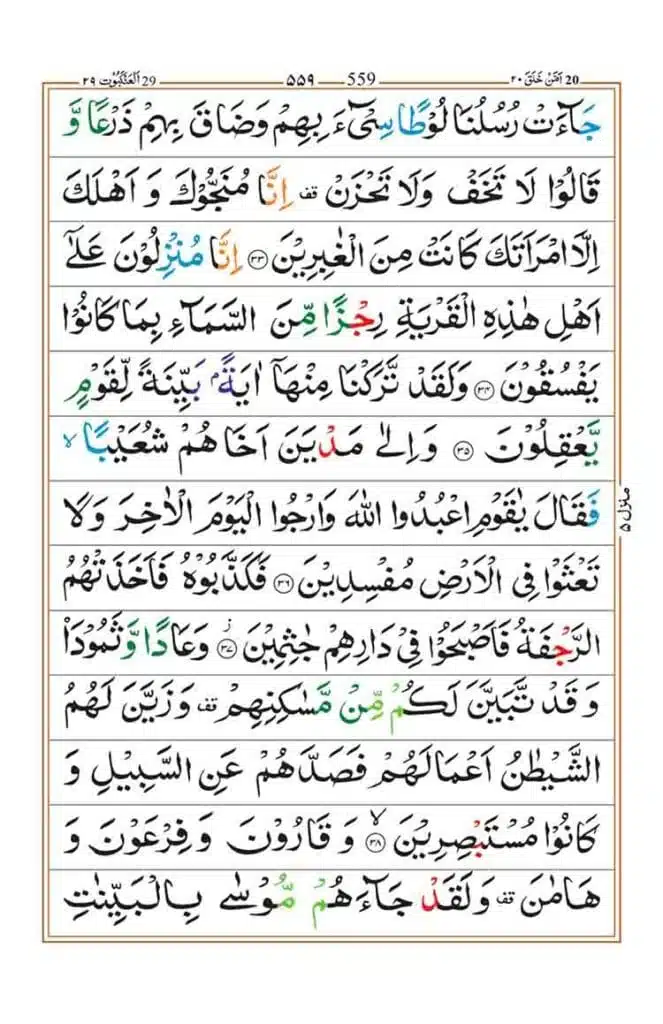 20 اَمَّنْ خَلَقَ ۲۰ 559 ۵۵۹ 29 اَلْعَنْكَبُوْت ۲۹
جَآءَتْ رُسُلُنَا لُوْطًا سِیْٓءَ بِهِمْ وَضَاقَ بِهِمْ ذَرْعًا وَّ
قَالُوْا لَا تَخَفْ وَلَا تَحْزَنْ قف اِنَّا مُنَجُّوْكَ وَ اَهْلَكَ
اِلَّا امْرَاَتَكَ كَانَتْ مِنَ الْغٰبِرِیْنَ ۳۳ اِنَّا مُنْزِلُوْنَ عَلٰۤی
اَهْلِ هٰذِهِ الْقَرْیَةِ رِجْزًا مِّنَ السَّمَآءِ بِمَا كَانُوْا
یَفْسُقُوْنَ ۳۴ وَلَقَدْ تَّرَكْنَا مِنْهَاۤ اٰیَةًۢ بَیِّنَةً لِّقَوْمٍ
یَّعْقِلُوْنَ ۳۵ وَ اِلٰی مَدْیَنَ اَخَاهُمْ شُعَیْبًا ۙ
فَقَالَ یٰقَوْمِ اعْبُدُوا اللّٰهَ وَارْجُوا الْیَوْمَ الْاٰخِرَ وَلَا
تَعْثَوْا فِی الْاَرْضِ مُفْسِدِیْنَ ۳۶ فَكَذَّبُوْهُ فَاَخَذَتْهُمُ
الرَّجْفَةُ فَاَصْبَحُوْا فِیْ دَارِهِمْ جٰثِمِیْنَ ۳۷ ز وَعَادًا وَّثَمُوْدَا۟
وَ قَدْ تَّبَیَّنَ لَكُمْ مِّنْ مَّسٰكِنِهِمْ قف وَ زَیَّنَ لَهُمُ
الشَّیْطٰنُ اَعْمَالَهُمْ فَصَدَّهُمْ عَنِ السَّبِیْلِ وَ
كَانُوْا مُسْتَبْصِرِیْنَ ۳۸ ۙ وَ قَارُوْنَ وَ فِرْعَوْنَ وَ
هَامٰنَ قف وَلَقَدْ جَآءَهُمْ مُّوْسٰی بِالْبَیِّنٰتِ
منزل ۵